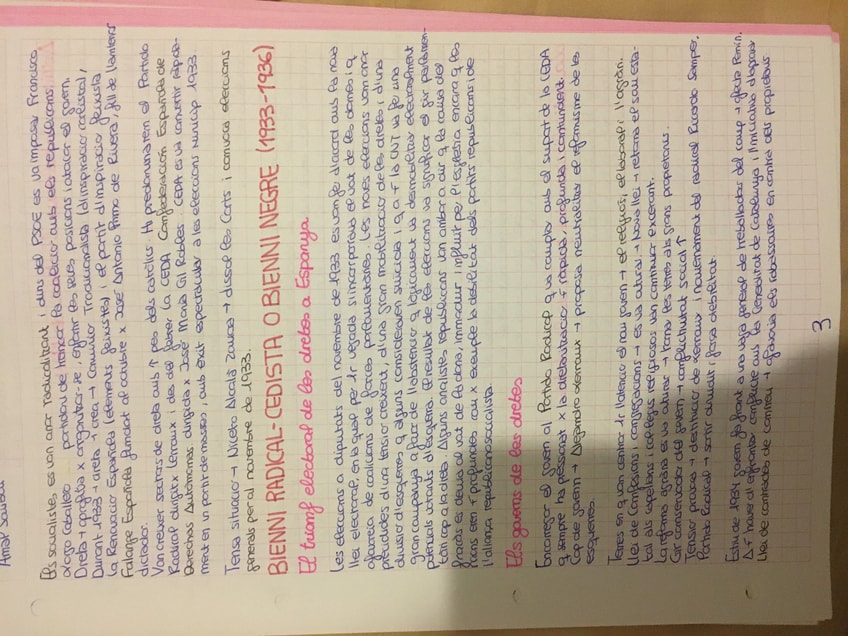 Amar Sauban
Els socialistes es van anar radicalitzant i dins del PSOE es va imposar Francisco
Largo Caballero partidari de trencar la coalició amb els republicans.
Dreta → aprofita x organitzar-se, enfortir les seves posicions i atacar el govern.
Durant 1933 → dreta → crea → Comunión Tradicionalista (d'inspiració carlista),
la Renovación Española (elements feixistes) i el partit d'inspiració feixista
Falange Española fundat al octubre x José Antonio Primo de Rivera, fill de l'anterior
dictador.
Van créixer sectors de dreta amb ↑ pes dels catòlics. Hi predominarem el Partido
Radical dirigit x Lerroux i des del febrer la CEDA Confederación Española de
Derechas Autónomas dirigida x José María Gil Robles. CEDA es va convertir ràpida-
ment en un partit de masses i amb èxit espectacular a les eleccions municip 1933
Tensa situació → Niceto Alcalá Zamora → dissol les Corts i convoca eleccions
generals per al novembre de 1933.
BIENNI RADICAL-CEDISTA O BIENNI NEGRE (1933-1936)
El triomf electoral de les dretes a Espanya
Les eleccions a diputats del novembre de 1933 es van fer d'acord amb la nova
llei electoral, en la qual per 1r vegada s'incorporava el vot de les dones i q
afavoria de coalicions de forces parlamentàries. Les noves eleccions van anar
precedides d'una tensió creixent, d'una gran mobilització de les dretes i d'una
divisió d'esquerres q alguns consideraven suïcida i q a + la CNT va fer una
gran campanya a favor de l'abstenció q lògicament va desmobilitzar electoralment
potencials votants d'esquerra. El resultat de les eleccions va significar el gir parlamen-
tari cap a la dreta. Alguns analistes republicans van arribar a dir q la causa del
fracàs es devia al vot de les dones, immadur i influït per l'església encara q les
raons eren + profundes com x exemple la debilitat dels partits republicans i de
l'aliança republicanosocialista.
Els governs de les dretes
Encarregar el govern al Partido Radical q va comptar amb el suport de la CEDA
q sempre ha pressionat x la dretanització + ràpida, profunda i contundent.
Cap de govern → Alejandro Lerroux → proposa neutralitzar el reformisme de les
esquerres.
Temes en q van centrar 1r l'atenció el nou govern → el religiós, el laboral i l'agrari.
Llei de Confessions i congregacions → es va aturar → Nova llei → retorna el sou esta-
tal als capellans i col·legis religiosos van continuar exercint.
La reforma agrària es va aturar → torna les terres als grans propietaris.
Gir conservador del govern → conflictivitat social ↑
Tensió provoca → destitució de Lerroux i nomenament del radical Ricardo Samper.
Partido Radical → sortir dividit i força debilitat.
Estiu de 1934 govern fa front a una vaga general de treballadors del camp →
A + haver d'enfrontar conflicte amb la Generalitat de Catalunya i l'iniciativa d'aplicar
Llei de contractes de conreu → afavoria els rabassaires en contra dels propietaris
3